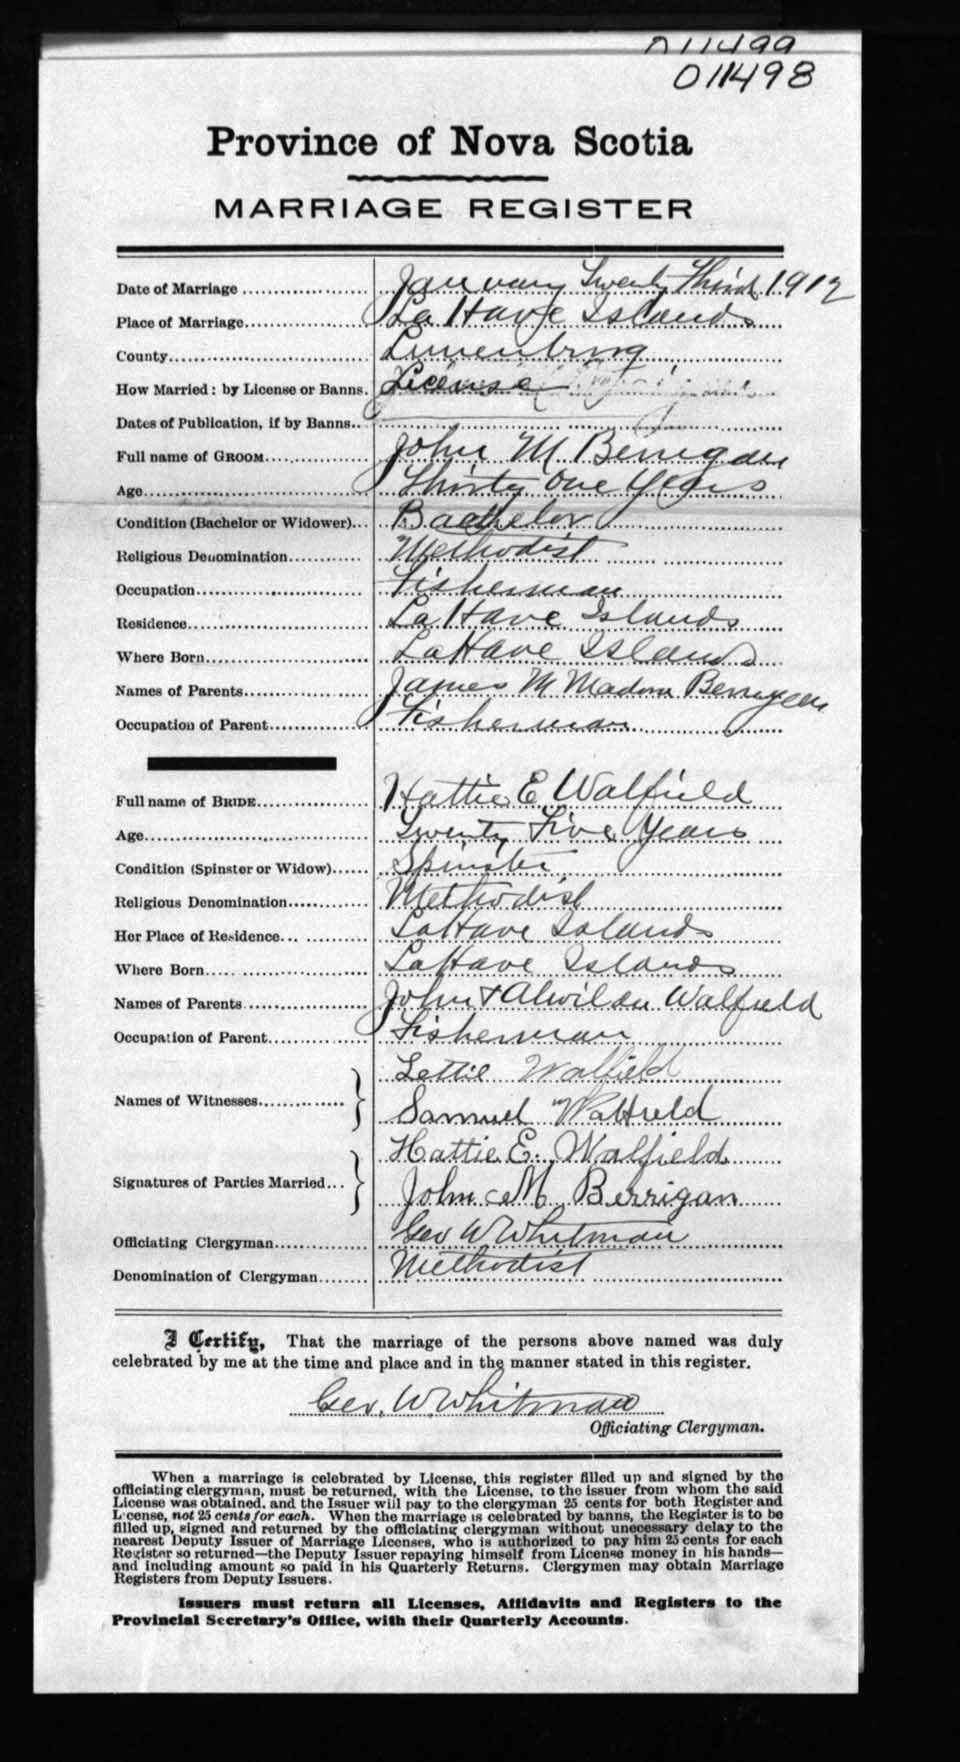 011499
011498
Province of Nova Scotia
MARRIAGE REGISTER
Date of Marriage January Twenty Third 1912
Place of Marriage La Have Islands
County Lunenburg
How Married: by License or Banns. License
Dates of Publication, if by Banns
Full name of GROOM John M Berrigan
Age Thirty One Years
Condition (Bachelor or Widower) Bachelor
Religious Denomination Methodist
Occupation Fisherman
Residence La Have Islands
Where Born LaHave Islands
Names of Parents James M Berrigan
Occupation of Parent Fisherman
Full name of BRIDE Hattie E Walfield
Age Twenty Five Years
Condition (Spinster or Widow) Spinster
Religious Denomination Methodist
Her Place of Residence LaHave Islands
Where Born LaHave Islands
Names of Parents John + Alwilda Walfield
Occupation of Parent Fisherman
Lettie Walfield
Names of Witnesses
Samuel Walfield
Hattie E. Walfield
Signatures of Parties Married
John M Berrigan
Officiating Clergyman Geo W Whitman
Denomination of Clergyman Methodist
I Certify, That the marriage of the persons above named was duly
celebrated by me at the time and place and in the manner stated in this register.
Geo. W. Whitman
Officiating Clergyman.
When a marriage is celebrated by License, this register filled up and signed by the
officiating clergyman, must be returned, with the License, to the issuer from whom the said
License was obtained, and the Issuer will pay to the clergyman 25 cents for both Register and
License, not 25 cents for each. When the marriage is celebrated by banns, the Register is to be
filled up, signed and returned by the officiating clergyman without unecessary delay to the
nearest Deputy Issuer of Marriage Licenses, who is authorized to pay him 25 cents for each
Register so returned—the Deputy Issuer repaying himself from License money in his hands—
and including amount so paid in his Quarterly Returns. Clergymen may obtain Marriage
Registers from Deputy Issuers.
Issuers must return all Licenses, Affidavits and Registers to the
Provincial Secretary's Office, with their Quarterly Accounts.